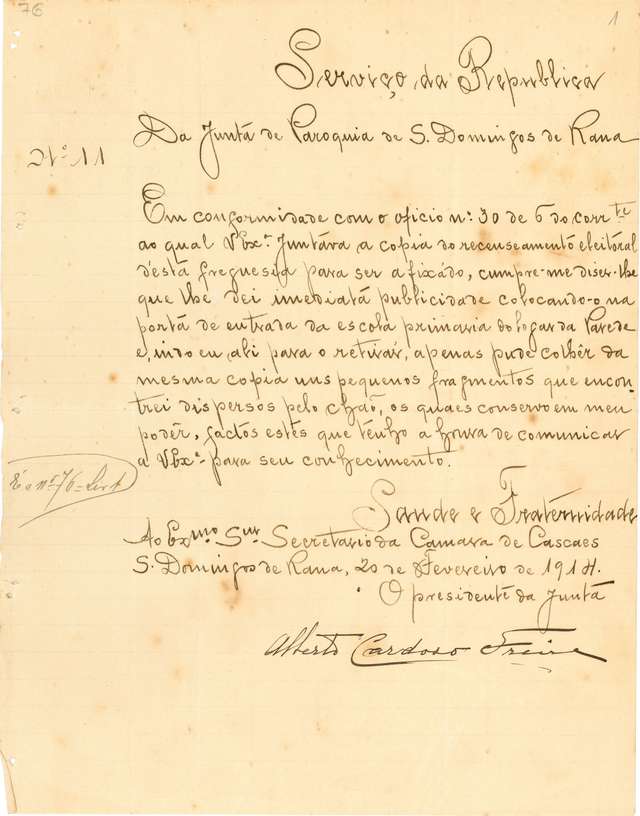 76
1
Serviço da Republica
Da Juntá de Paroquia de S. Domingos de Rana
Nº 11
Em conformidade com o oficio nº. 30 de 6 do corr.te
ao qual V Exª. Juntára a copia do recenseamento eleitoral
d'está freguesia para ser afixádo, cumpre-me diser-lhe
que lhe dei imediatá publicidade colocando-o na
portá de entrada da escolá primaria do logar da Parede
e, indo eu ali para o retirár, apenas pude colhêr da
mesma copia uns pequenos fragmentos que encon
trei dispersos pelo chão, os quaes conservo em meu
podêr, factos estês que tenho a honra de comunicar
a V Exª. para seu conhecimento.
E o nº 76
Saude e Fratérnidade
Ao Exmo Snr. Secretario da Camara de Cascaes
S. Domingos de Rana, 20 de Fevereiro de 1914.
O presidente da Juntá
Alberto Cardoso Freire